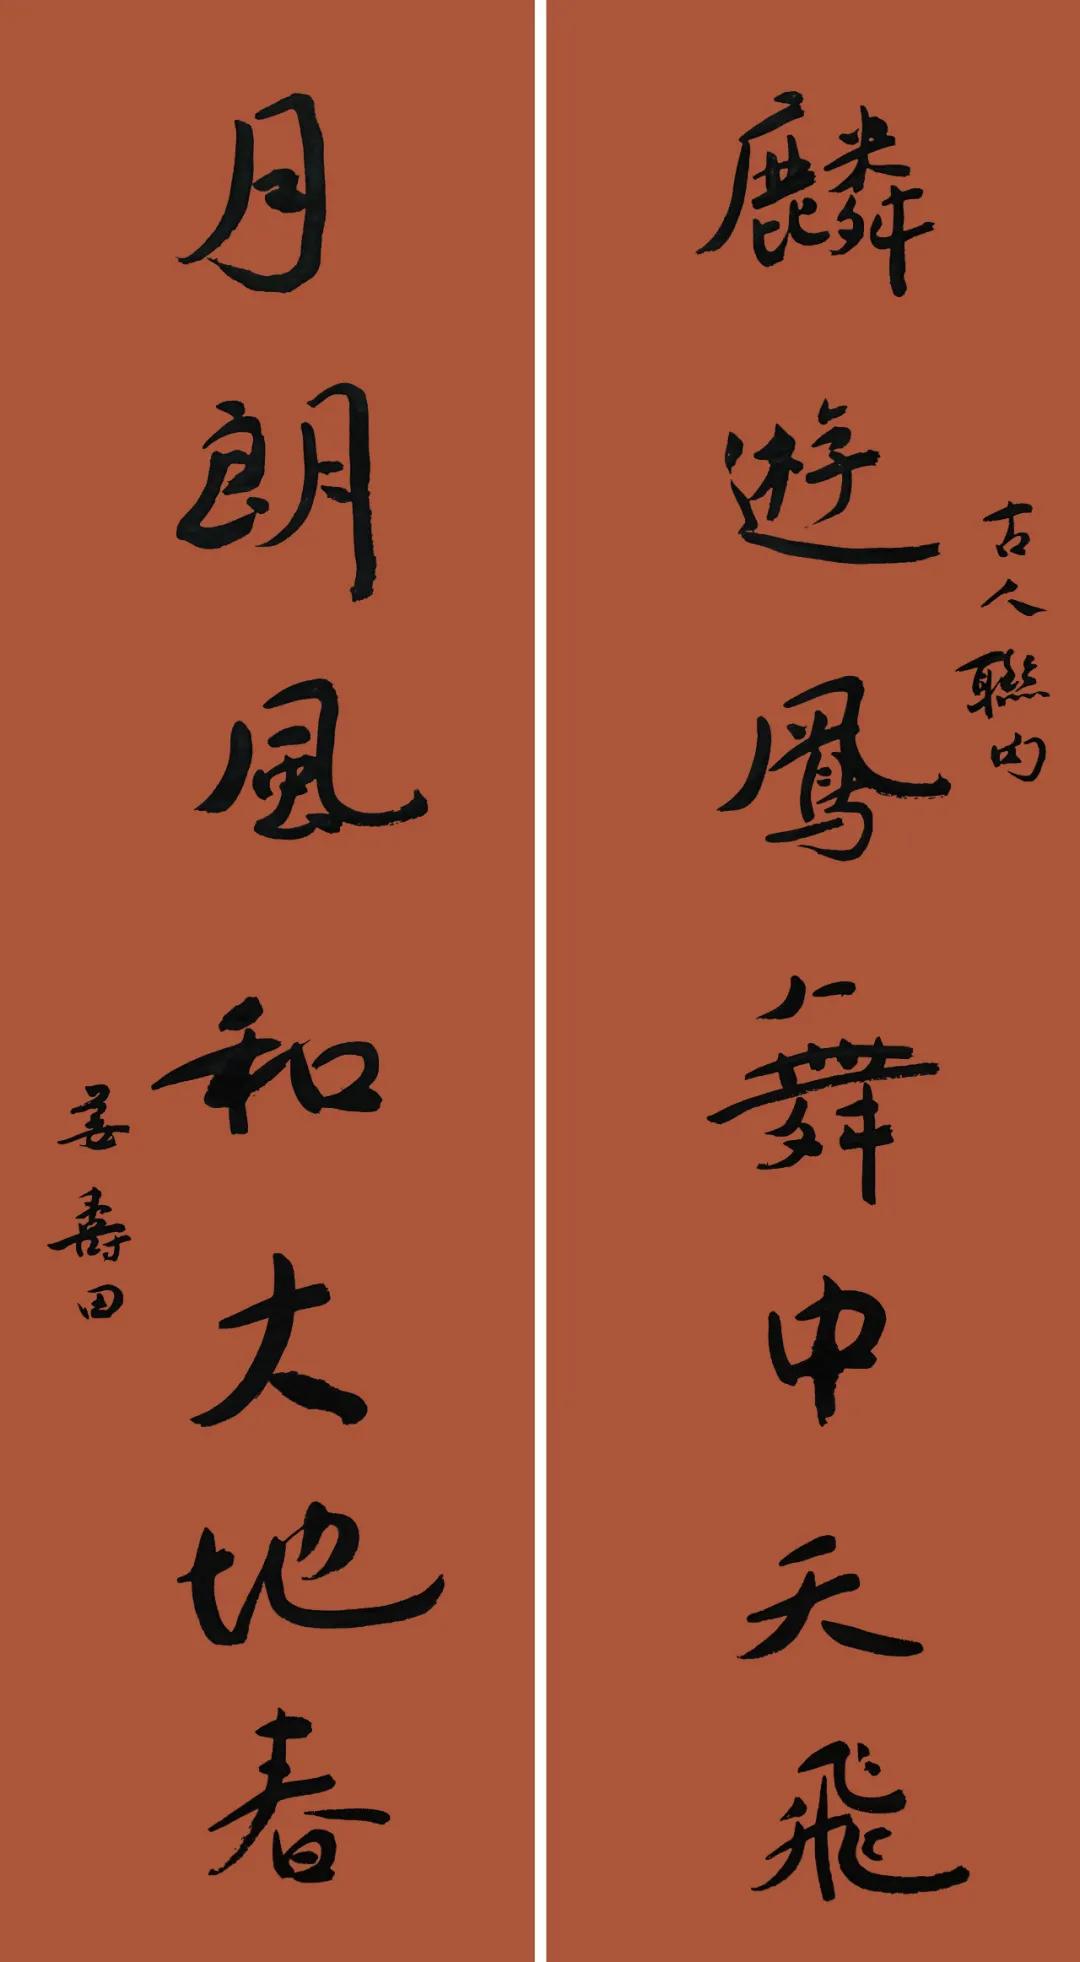 麟遊鳳舞中天飛
古人聯句
月朗風和大地春
姜壽田